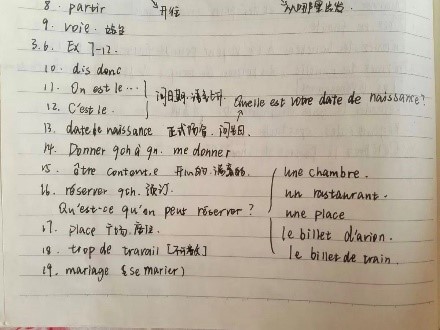 8. partir 开往
9. voie. 站台
3.6. Ex 7-12.
10. dis donc
11. On est le...
12. C'est le. 问日期. Quelle est votre date de naissance?
13. date de naissance 正式场合. 问生日.
14. Donner qch à qn. me donner
15. être content.e 开心的. 满意的. une chambre.
16. réserver qch. 预订. un restaurant.
Qu'est-ce qu'on peut réserver? une place
17. place 广场. 座位. le billet d'avion.
18. trop de travail [不可数] le billet de train.
19. mariage (se marier)